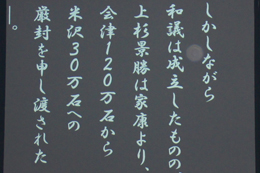 しかしながら
和議は成立したものの、
上杉景勝は家康より、
会津120万石から
米沢30万石への
厳封を申し渡された
。